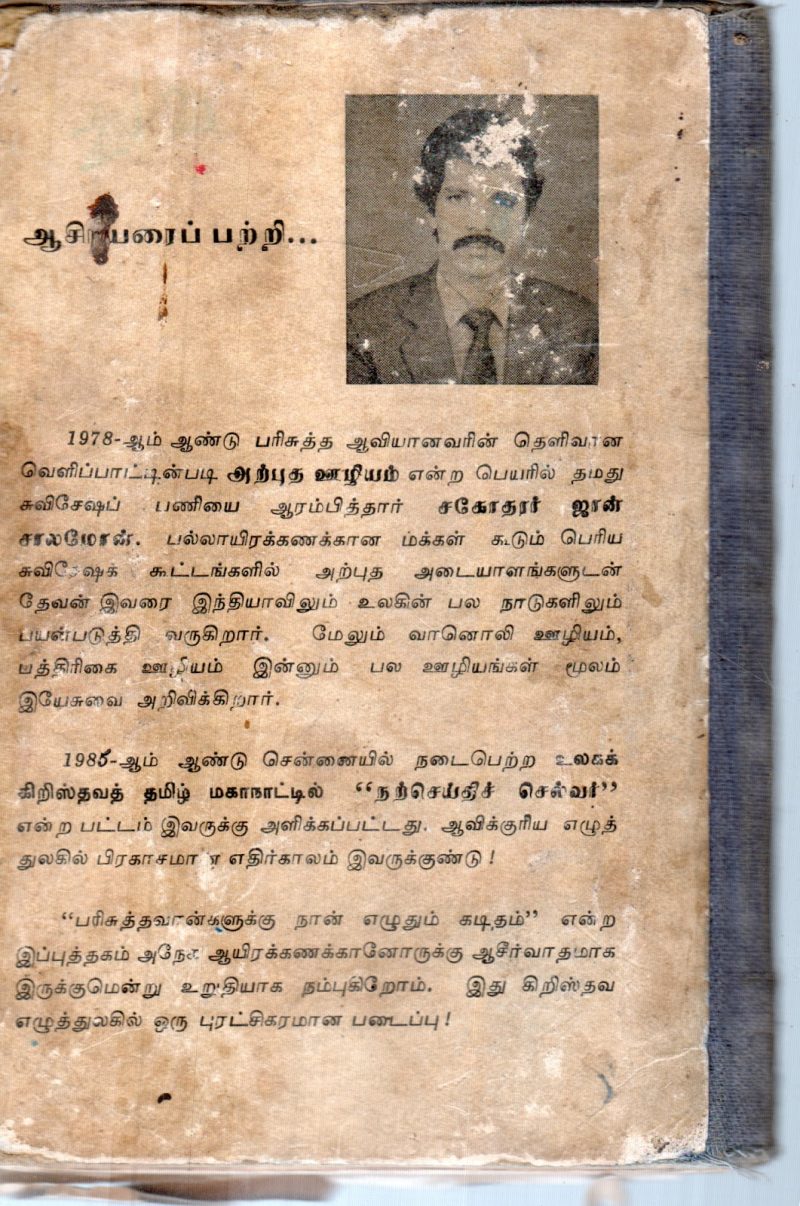 ஆசிரியரைப் பற்றி...
1978-ஆம் ஆண்டு பரிசுத்த ஆவியானவரின் தெளிவான
வெளிப்பாட்டின்படி அற்புத ஊழியம் என்ற பெயரில் தமது
சுவிசேஷப் பணியை ஆரம்பித்தார் சகோதரர் ஜான்
சாலமோன். பல்லாயிரக்கணக்கான மக்கள் கூடும் பெரிய
சுவிசேஷக் கூட்டங்களில் அற்புத அடையாளங்களுடன்
தேவன் இவரை இந்தியாவிலும் உலகின் பல நாடுகளிலும்
பயன்படுத்தி வருகிறார். மேலும் வானொலி ஊழியம்,
பத்திரிகை ஊழியம் இன்னும் பல ஊழியங்கள் மூலம்
இயேசுவை அறிவிக்கிறார்.
1985-ஆம் ஆண்டு சென்னையில் நடைபெற்ற உலகக்
கிறிஸ்தவத் தமிழ் மகாநாட்டில் “நற்செய்திச் செல்வர்”
என்ற பட்டம் இவருக்கு அளிக்கப்பட்டது. ஆவிக்குரிய எழுத்
துலகில் பிரகாசமான எதிர்காலம் இவருக்குண்டு!
“பரிசுத்தவான்களுக்கு நான் எழுதும் கடிதம்” என்ற
இப்புத்தகம் அநேக ஆயிரக்கணக்கானோருக்கு ஆசீர்வாதமாக
இருக்குமென்று உறுதியாக நம்புகிறோம். இது கிறிஸ்தவ
எழுத்துலகில் ஒரு புரட்சிகரமான படைப்பு!